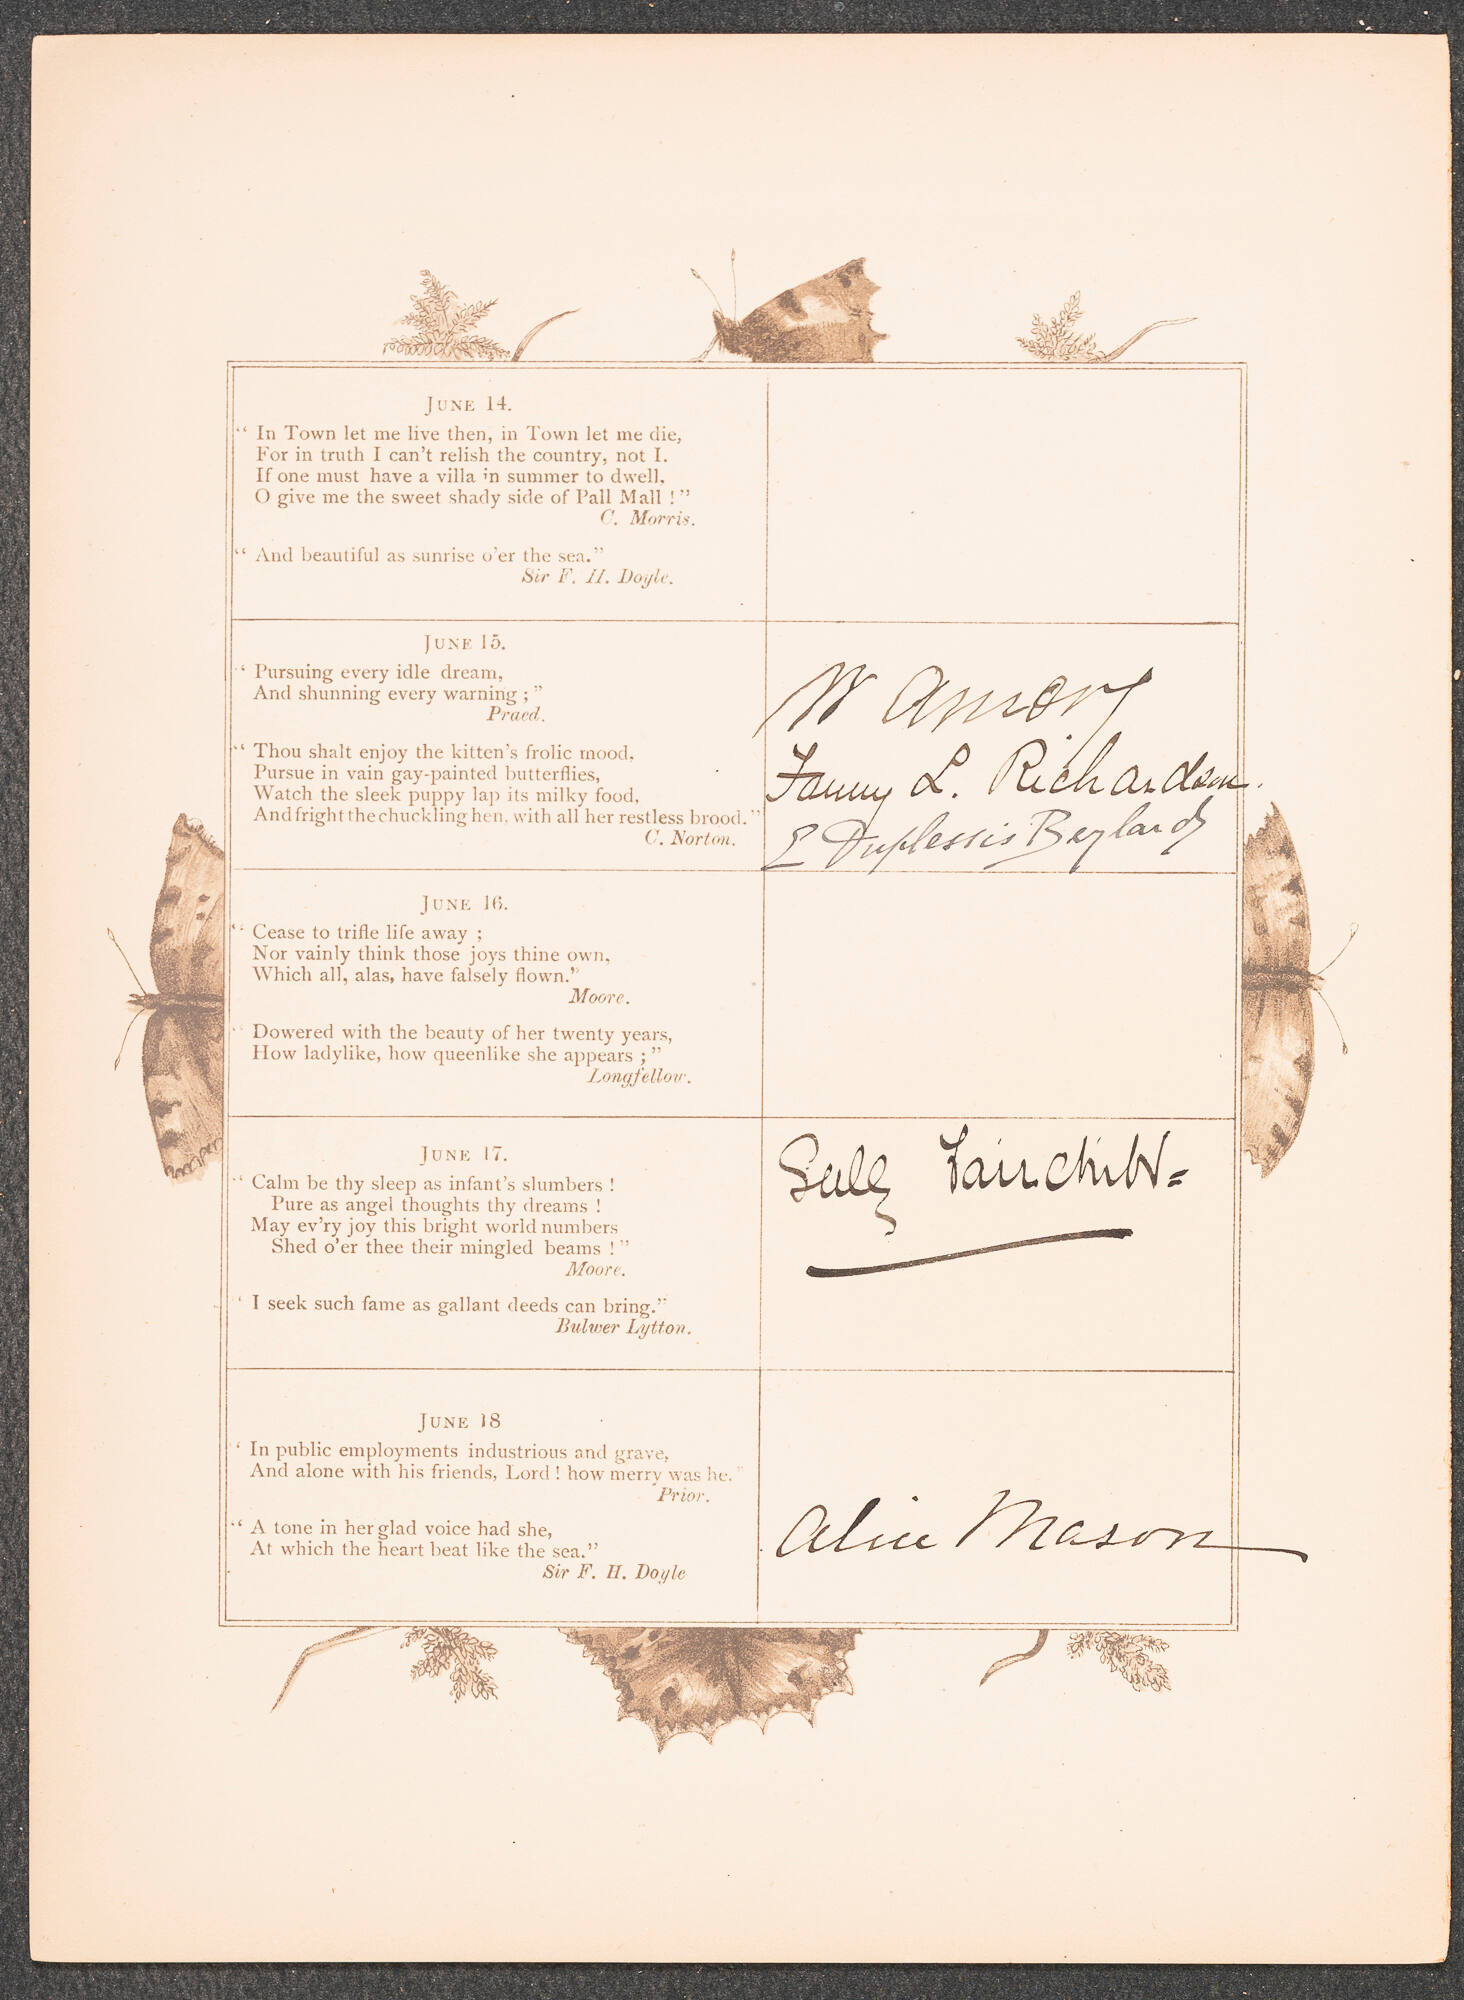 JUNE 14.
“ In Town let me live then, in Town let me die,
For in truth I can’t relish the country, not I.
If one must have a villa in summer to dwell,
O give me the sweet shady side of Pall Mall !”
C. Morris.
“ And beautiful as sunrise o’er the sea.”
Sir F. H. Doyle.
JUNE 15.
“ Pursuing every idle dream,
And shunning every warning ; ”
Praed.
“ Thou shalt enjoy the kitten’s frolic mood,
Pursue in vain gay-painted butterflies,
Watch the sleek puppy lap its milky food,
And fright the chuckling hen, with all her restless brood.”
C. Norton.
W Amory
Fanny L. Richardson.
E Duplessis Beylard
JUNE 16.
“ Cease to trifle life away ;
Nor vainly think those joys thine own,
Which all, alas, have falsely flown.”
Moore.
“ Dowered with the beauty of her twenty years,
How ladylike, how queenlike she appears ; ”
Longfellow.
JUNE 17.
“ Calm be thy sleep as infant’s slumbers !
Pure as angel thoughts thy dreams !
May ev’ry joy this bright world numbers
Shed o’er thee their mingled beams ! ”
Moore.
‘ I seek such fame as gallant deeds can bring.”
Bulwer Lytton.
Sally Fairchild=
JUNE 18
‘ In public employments industrious and grave,
And alone with his friends, Lord ! how merry was he.”
Prior.
“ A tone in her glad voice had she,
At which the heart beat like the sea.”
Sir F. H. Doyle
Alice Mason